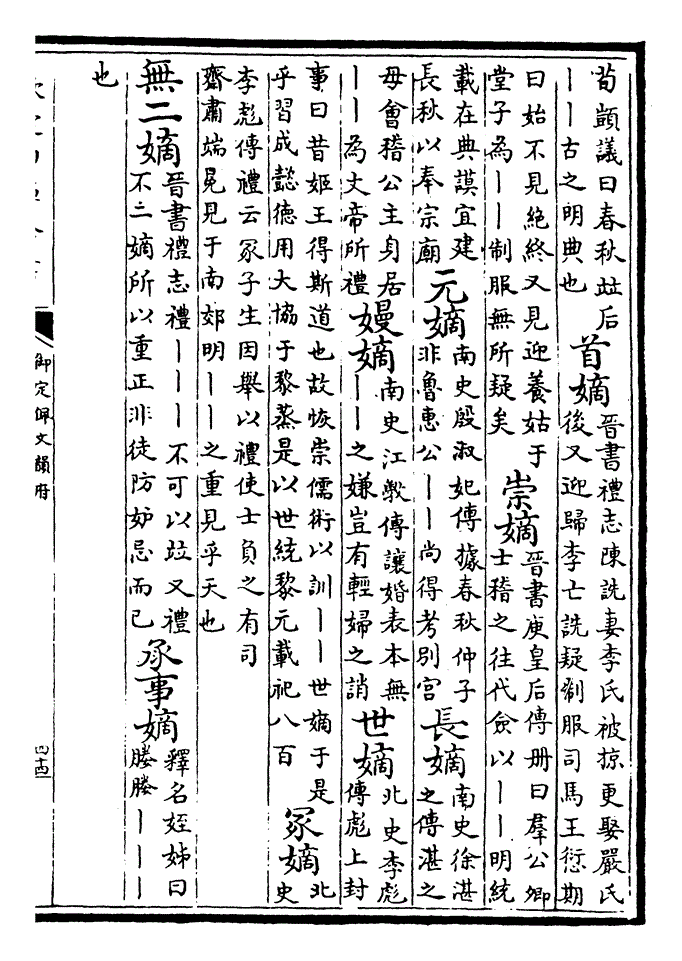 荀顗議曰春秋竝后
｜｜古之明典也
首嫡
晉書禮志陳詵妻李氏被掠更娶嚴氏
後又迎歸李亡詵疑制服司馬王愆期
曰始不見絶終又見迎養姑于
堂子為｜｜制服無所疑矣
崇嫡
晉書庾皇后傳册曰羣公卿
士稽之往代僉以｜｜明統
載在典謨宜建
長秋以奉宗廟
元嫡
南史殷淑妃傳據春秋仲子
非魯惠公｜｜尚得考别宫
長嫡
南史徐湛
之傳湛之
母會稽公主身居
｜｜為文帝所禮
嫚嫡
南史江斆傳讓婚表本無
｜｜之嫌豈有輕婦之誚
世嫡
北史李彪
傳彪上封
事曰昔姬王得斯道也故恢崇儒術以訓｜｜世嫡于是
乎習成懿徳用大協于黎蒸是以世統黎元載祀八百
冢嫡
北
史
李彪傳禮云冢子生因舉以禮使士負之有司
齋肅端冕見于南郊明｜｜之重見乎天也
無二嫡
晉書禮志禮｜｜｜不可以竝又禮
不二嫡所以重正非徒防妬忌而已
承事嫡
釋名姪娣曰
媵媵｜｜｜
也
御定佩文韻府
四十四